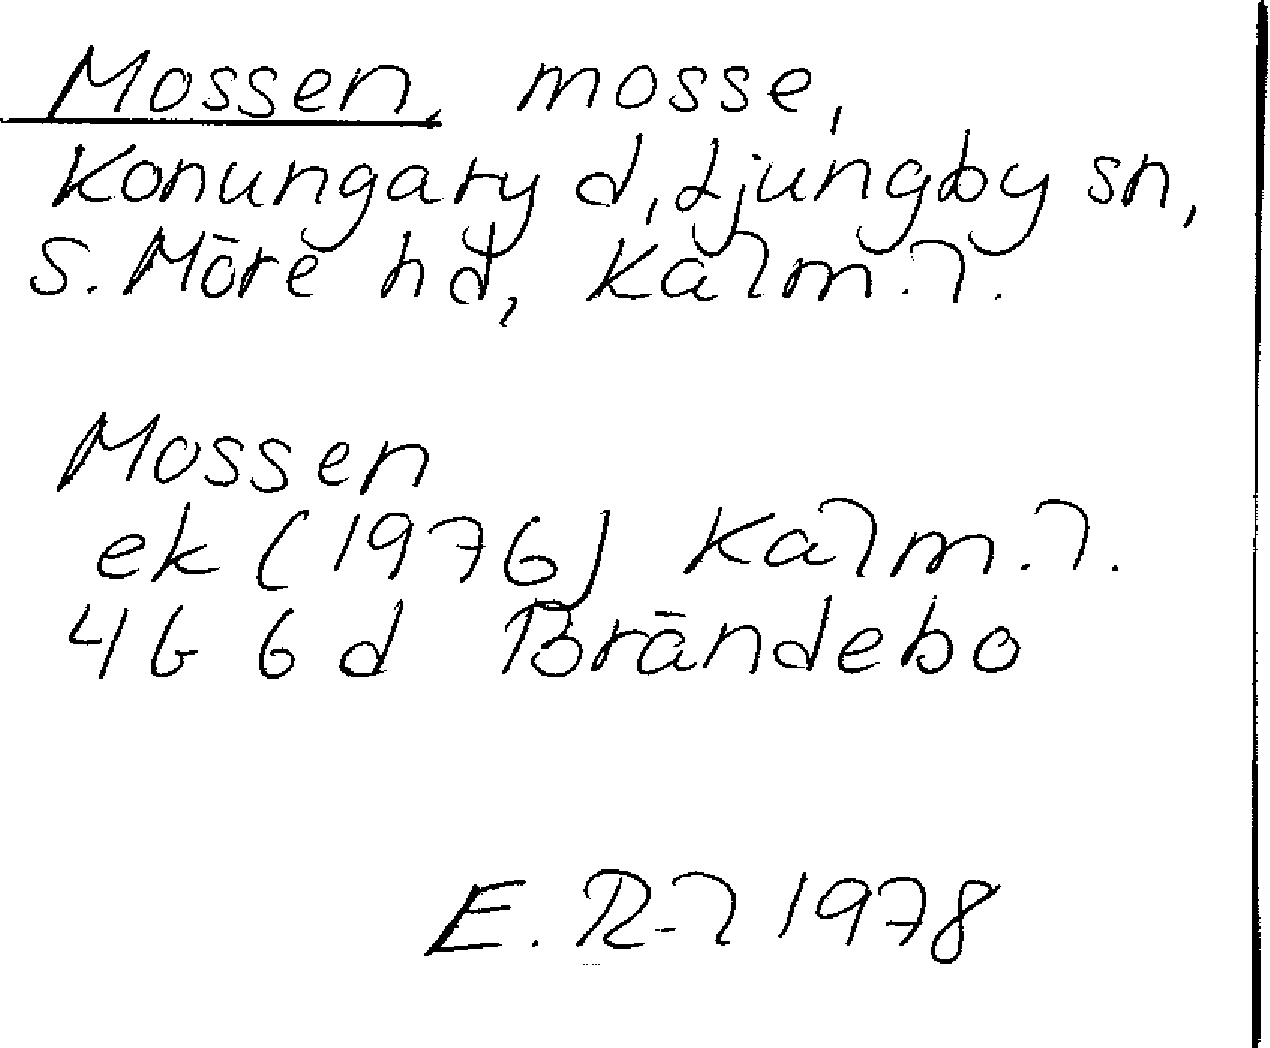 Mossen, mosse,
Konungary d, Ljungby sn,
S. Möre hd, Kalm. l.
Mossen
ek (1976) Kalm. l.
4G 6d Brändebo
E. R-l 1978